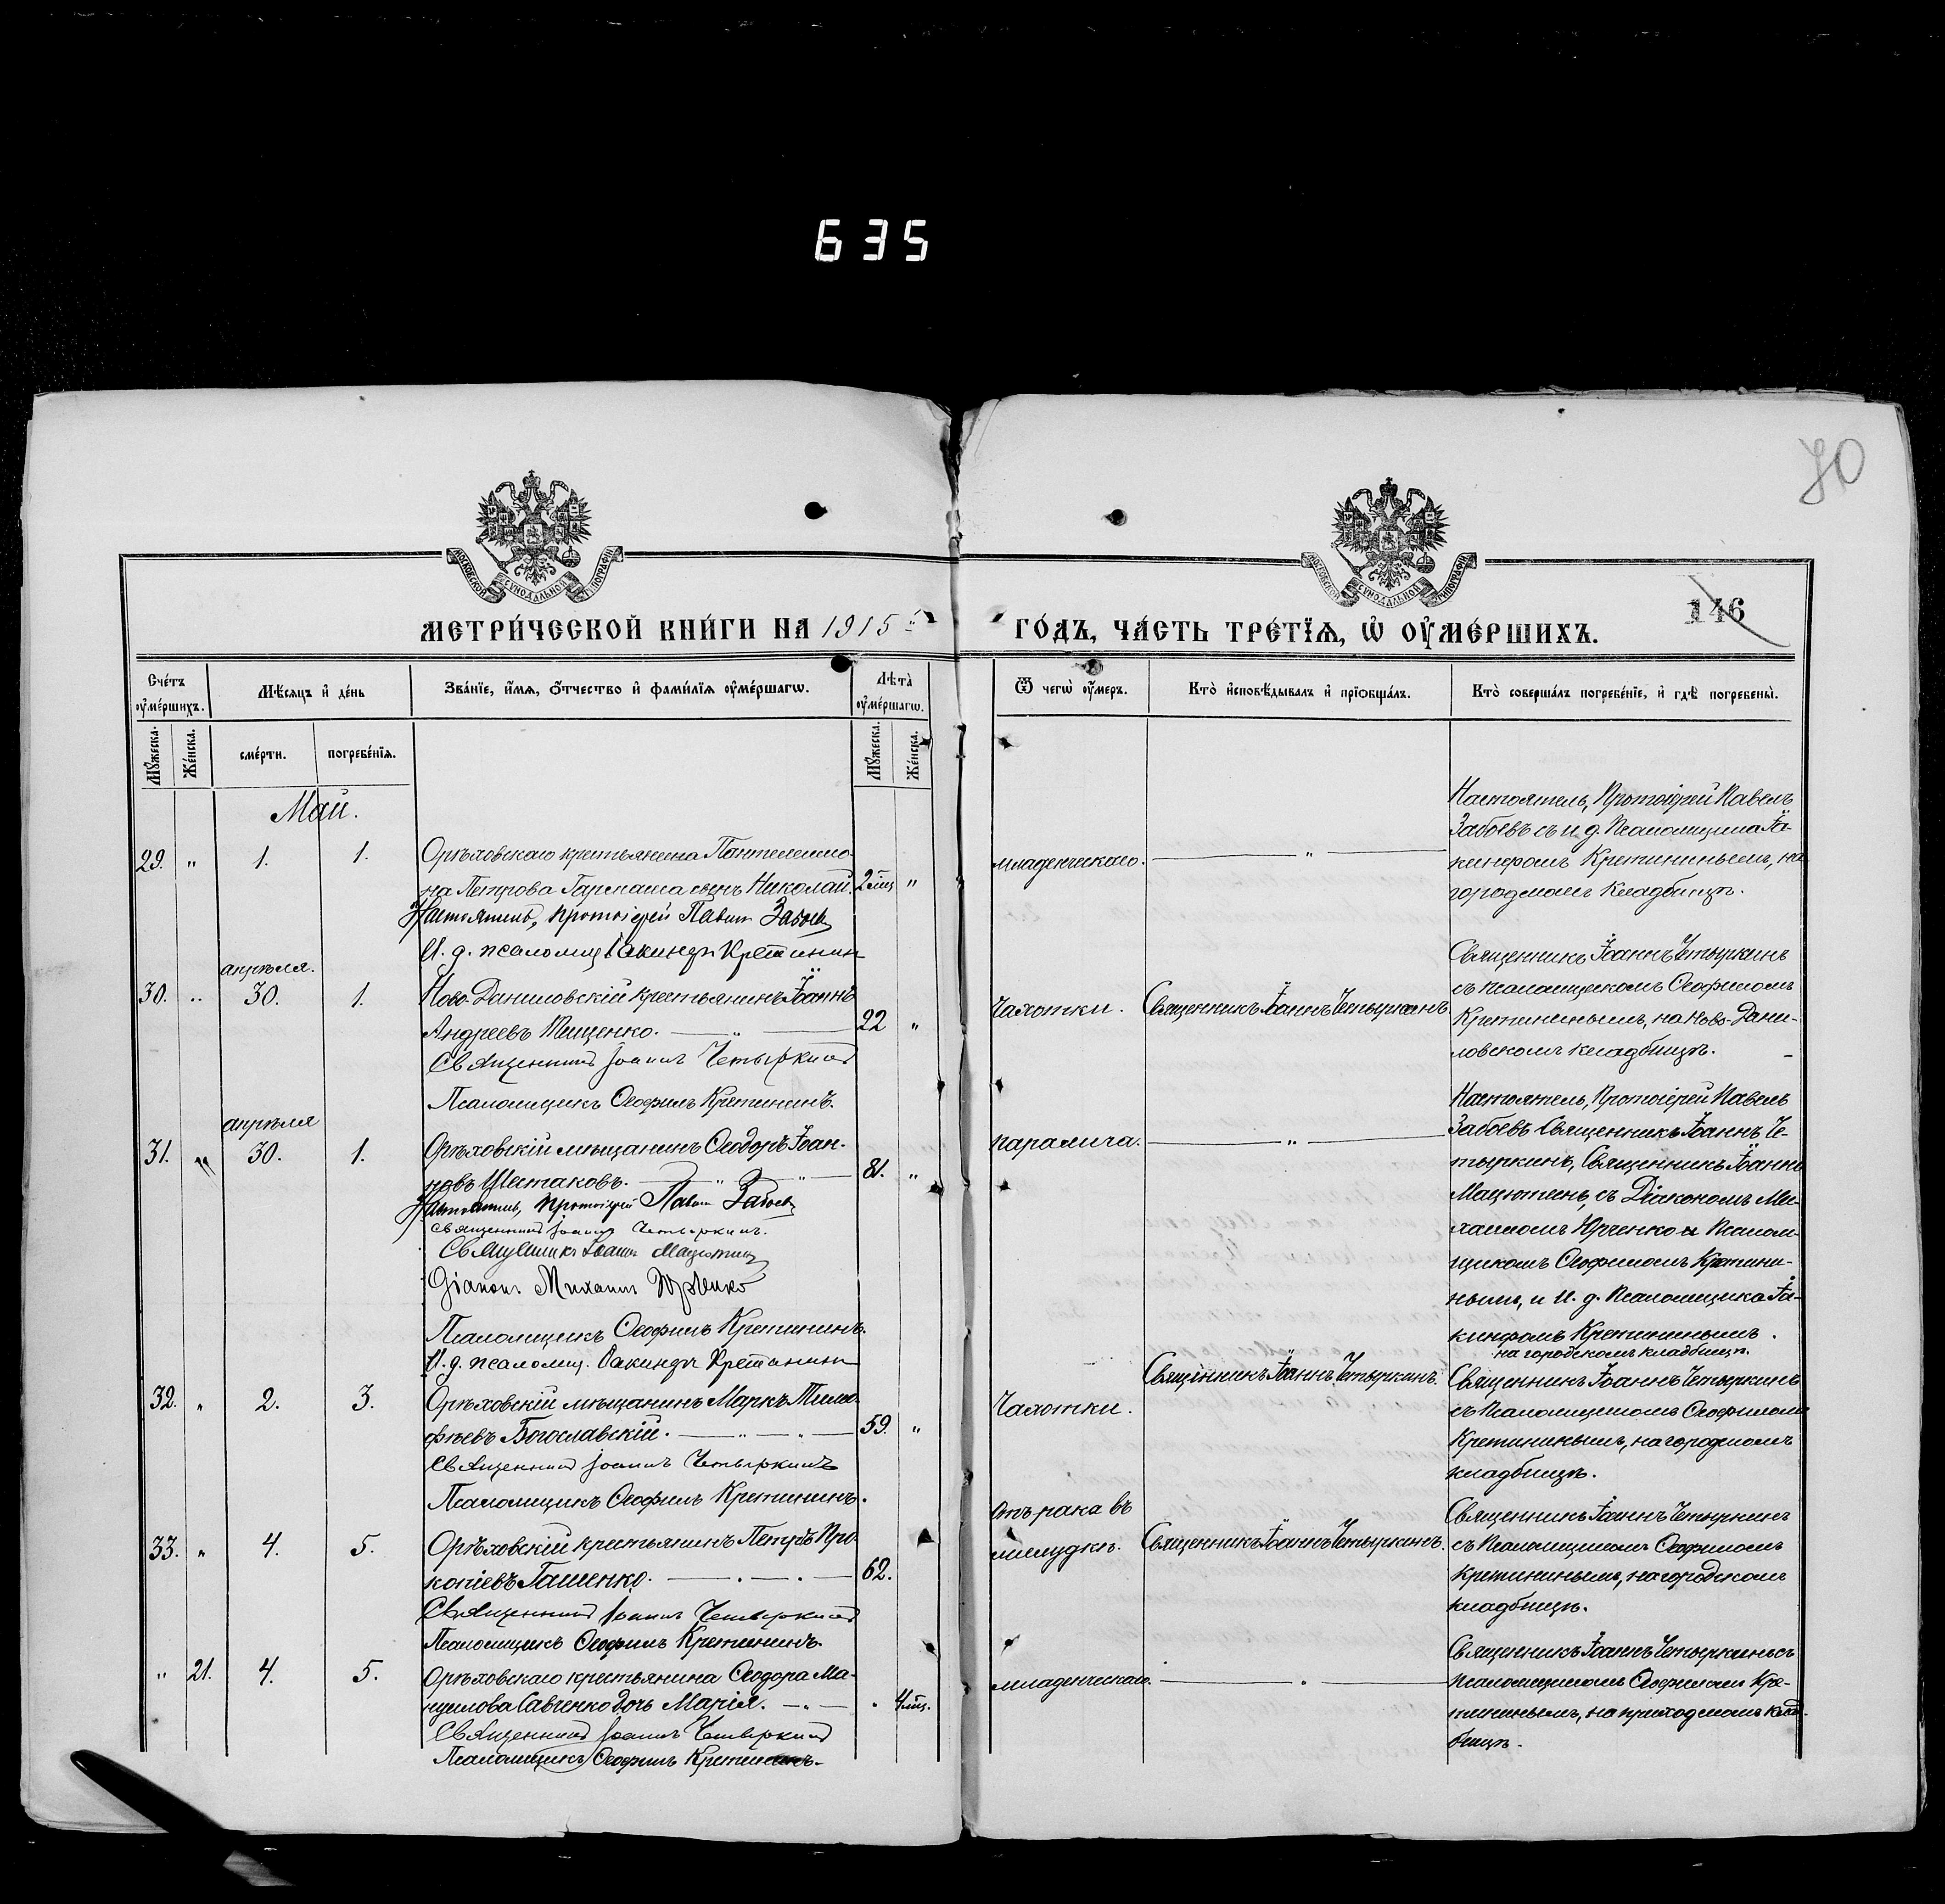 635
70
МОСКОВСКОЙ СУНОДАЛЬНОЙ ТИПОГРАФІИ
МОСКОВСКОЙ СУНОДАЛЬНОЙ ТИПОГРАФІИ
146
МЕТРИ́ЧЕСКОЙ КНИ́ГИ НА 1915 й
ГО́ДЪ, ЧА́СТЬ ТРЕ́ТЇѦ, Ѡ҆ ОУ҆МЕ́РШИХЪ.
Сче́тъ оу҆ме́ршихъ.
Мѣ́сяцъ и҆ де́нь
Зва́нїе, и҆́мѧ, ѻ҆́тчество и҆ фами́лїѧ оу҆ме́ршагѡ.
Лѣ́та оу҆ме́ршагѡ.
Ѿ чегѡ̀ оу҆́меръ.
Кто̀ и҆сповѣ́дывалъ и҆ прїобща́лъ.
Кто̀ соверша́лъ погребе́нїе, и҆ гдѣ̀ погребены̀.
Мꙋ́жеска.
Же́нска.
сме́рти.
погребе́нїѧ.
Мꙋ́жеска.
Же́нска.
Май.
29. " 1. 1.
Орѣховскаго крестьянина Пантелеимо-
на Петрова Гармаша сынъ Николай. 2 мц "
Настоятель, Протоіерей Павелъ Забоевъ
И. д. псаломщ Іакинфъ Кретининъ
младенческаго. "
Настоятель, Протоіерей Павелъ
Забоевъ съ и. д. Псаломщика Іа-
кинфомъ Кретининымъ, на
городскомъ кладбищѣ.
апрѣля.
30. " 30. 1.
Ново-Даниловскій крестьянинъ Іоаннъ
Андреевъ Тищенко. " 22 "
Священникъ Іоаннъ Четыркинъ
Псаломщикъ Ѳеофилъ Кретининъ.
Чахотки. Священникъ Іоаннъ Четыркинъ.
Священникъ Іоаннъ Четыркинъ
съ псаломщикомъ Ѳеофиломъ
Кретининымъ, на Ново-Дани-
ловскомъ кладбищѣ.
апрѣля
31. " 30. 1.
Орѣховскій мѣщанинъ Ѳеодоръ Іоан-
новъ Шестаковъ. " " 81. "
Настоятель, Протоіерей Павелъ Забоевъ
Священникъ Іоаннъ Четыркинъ.
Священникъ Іоаннъ Мацютинъ
Діаконъ Михаилъ Юрченко
Псаломщикъ Ѳеофилъ Кретининъ.
И. д. псаломщ. Іакинфъ Кретининъ
паралича. "
Настоятель, Протоіерей Павелъ
Забоевъ Священникъ Іоаннъ Че-
тыркинъ, Священникъ Іоаннъ
Мацютинъ, съ Діакономъ Ми-
хаиломъ Юрченко и Псалом-
щикомъ Ѳеофиломъ Кретини-
нымъ, и И. д. Псаломщика Іа-
кинфомъ Кретининымъ.
на городскомъ кладбищѣ.
32. " 2. 3.
Орѣховскій мѣщанинъ Маркъ Тимо-
фѣевъ Богославскій. " " 59. "
Священникъ Іоаннъ Четыркинъ
Псаломщикъ Ѳеофилъ Кретининъ.
Чахотки. Священникъ Іоаннъ Четыркинъ.
Священникъ Іоаннъ Четыркинъ
съ Псаломщикомъ Ѳеофиломъ
Кретининымъ, на городскомъ
кладбищѣ.
33. " 4. 5.
Орѣховскій крестьянинъ Петръ Про-
копіевъ Гашенко. 62.
Священникъ Іоаннъ Четыркинъ
Псаломщикъ Ѳеофилъ Кретининъ.
Отъ рака въ
желудкѣ. Священникъ Іоаннъ Четыркинъ.
Священникъ Іоаннъ Четыркинъ
съ Псаломщикомъ Ѳеофиломъ
Кретининымъ, на городскомъ
кладбищѣ.
" 21. 4. 5.
Орѣховскаго крестьянина Ѳеодора Ма-
нуилова Савченко дочь Марія. " 4 мц.
Священникъ Іоаннъ Четыркинъ
Псаломщикъ Ѳеофилъ Кретининъ.
младенческаго.
Священникъ Іоаннъ Четыркинъ съ
псаломщикомъ Ѳеофиломъ Кре-
тининымъ, на приходскомъ клад-
бищѣ.